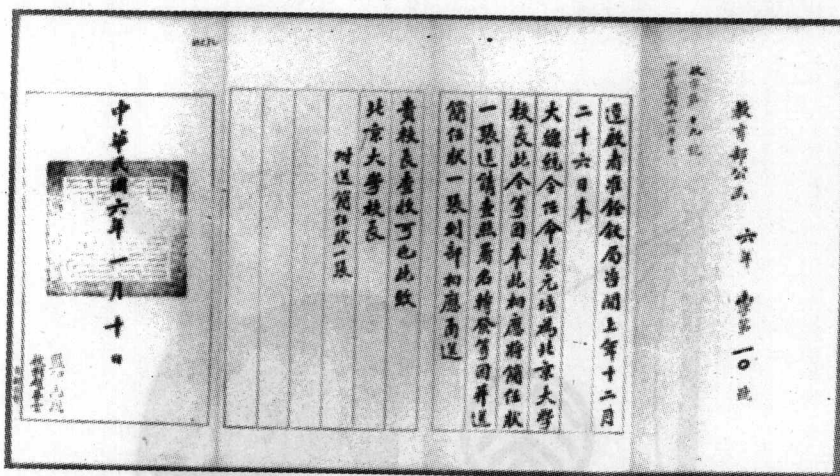 教育部公函 六年 字第一〇號
逕啟者准銓敘局書開上年十二月
二十六日奉
大總統令任命蔡元培為北京大學
校長此令等因奉此相應將簡任狀
一張送請查照署名轉發等因并送
簡任狀一張到部相應函送
貴校長查收可也此致
北京大學校長
附送簡任狀一張
中華民國六年一月十日